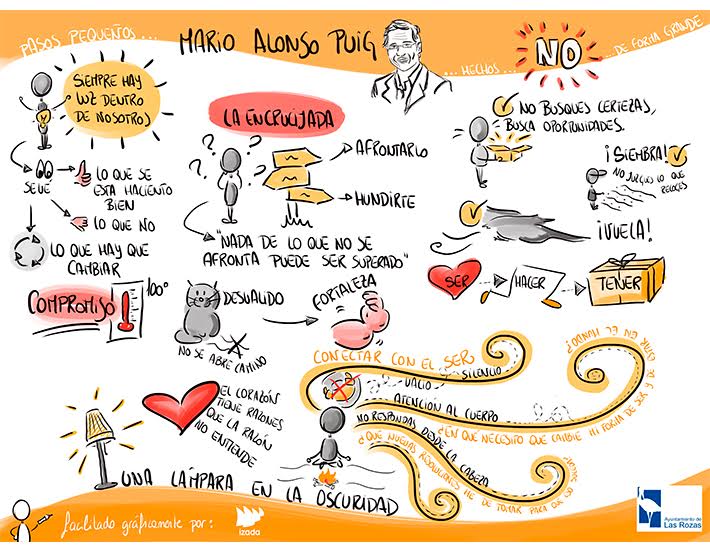 PASOS PEQUEÑOS...
MARIO ALONSO PUIG
... HECHOS ...
NO
... DE FORMA GRANDE
SIEMPRE HAY
LUZ DENTRO
DE NOSOTROS
SE VE
LO QUE SE
ESTA HACIENTO
BIEN
LO QUE NO
LO QUE HAY QUE
CAMBIAR
COMPROMISO
100°
LA ENCRUCIJADA
? ? ? ?
AFRONTARLO
HUNDIRTE
"NADA DE LO QUE NO SE
AFRONTA PUEDE SER SUPERADO"
DESVALIDO
NO SE ABRE CAMINO
FORTALEZA
NO BUSQUES CERTEZAS,
BUSCA OPORTUNIDADES.
¡SIEMBRA!
NO JUZGUES LO QUE
RECOGES
¡VUELA!
SER
HACER
TENER
EL CORAZÓN
TIENE RAZONES
QUE LA RAZÓN
NO ENTIENDE
CONECTAR CON EL SER
VACIO
SILENCIO
ATENCIÓN AL CUERPO
NO RESPONDAS DESDE LA CABEZA
¿EN QUE NECESITO QUE CAMBIE MI FORMA DE SER Y DE
ESTAR EN EL MUNDO?
¿QUE NUEVAS RESOLUCIONES HE DE TOMAR PARA QUE ESO
UNA LÁMPARA EN LA OSCURIDAD
facilitado gráficamente por:
izada
Ayuntamiento de
Las Rozas